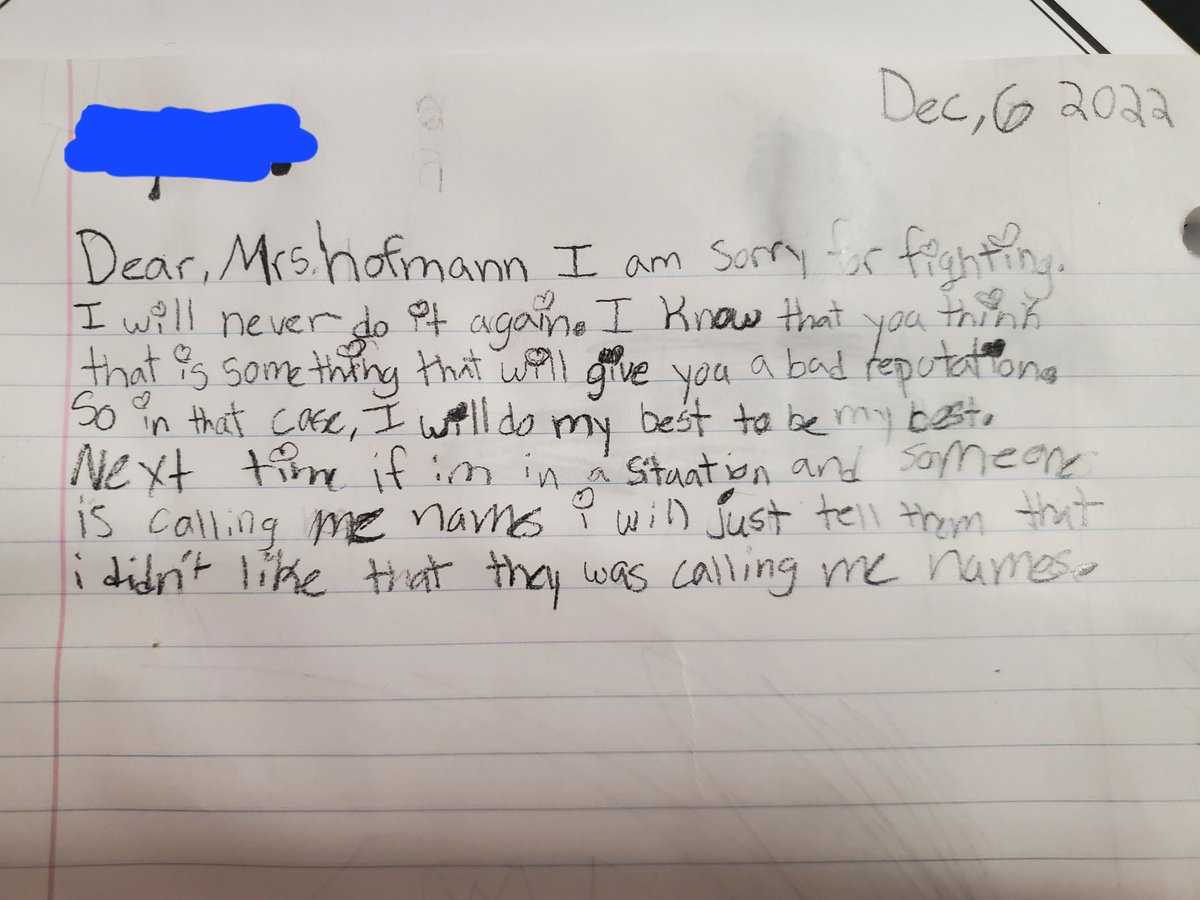 Dec, 6 2022
Dear, Mrs. hofmann I am Sorry for fighting.
I will never do it again. I Know that you think
that is something that will give you a bad reputation.
So in that case, I will do my best to be my best.
Next time if im in a Situation and Someone
is calling me names i will just tell them that
i didn't like that they was calling me names.